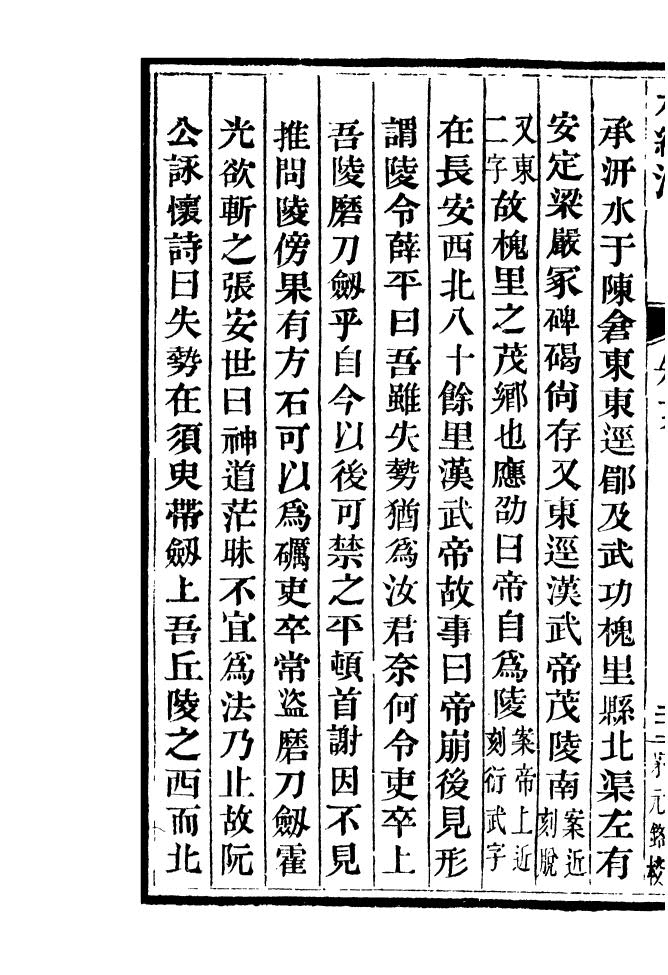 承汧水于陳倉東東逕郿及武功槐里縣北渠左有
安定梁嚴冢碑碣尙存又東逕漢武帝茂陵南案近刻脫
又東二字故槐里之茂鄉也應劭曰帝自爲陵案帝上近刻衍武字
在長安西北八十餘里漢武帝故事曰帝崩後見形
謂陵令薛平曰吾雖失勢猶爲汝君奈何令吏卒上
吾陵磨刀劔乎自今以後可禁之平頓首謝因不見
推問陵傍果有方石可以爲礪吏卒常盗磨刀劔霍
光欲斬之張安世曰神道茫昧不宜爲法乃止故阮
公詠懷詩曰失勢在須臾帶劔上吾丘陵之西而北